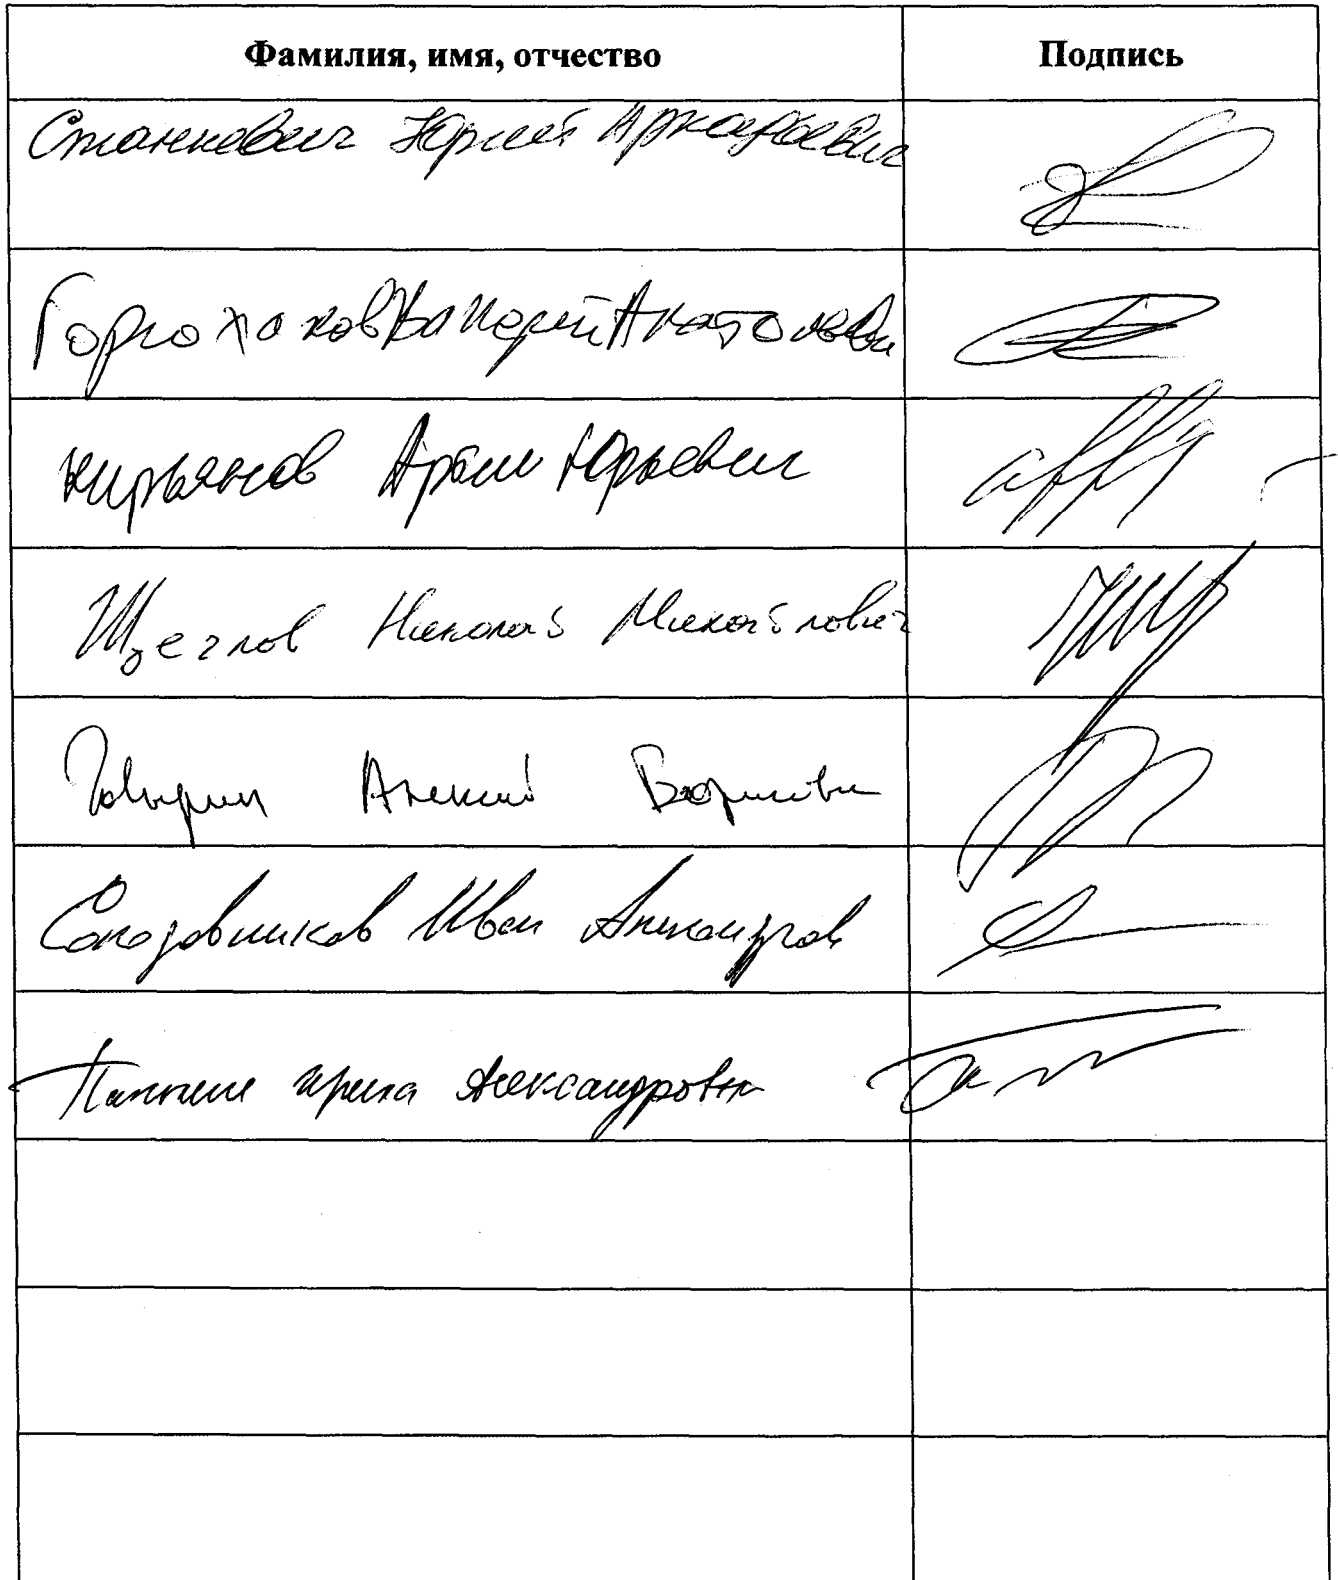 Фамилия, имя, отчество Подпись
Станкевич Юрий Аркадьевич
Валерий Анатольеви
Кирьянов Артём Юрьевич
Щеглов Николай Михайлович
Алексей Борисович
Солодовников Иван Александров
Ирина Александровна